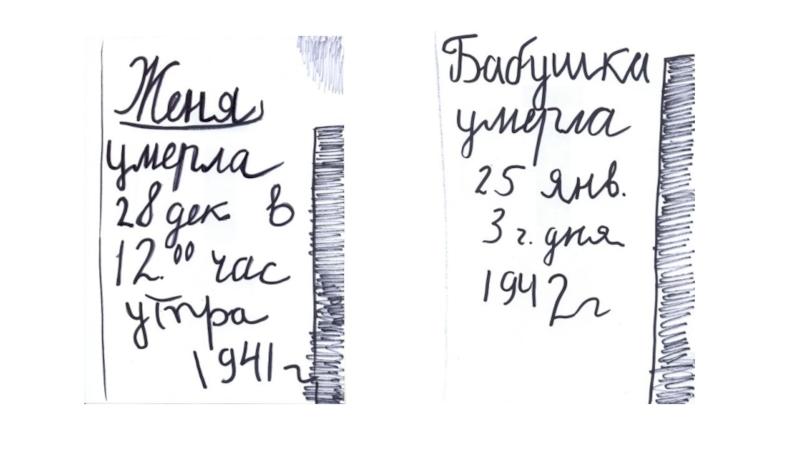 Женя
умерла
28 дек в
12.00 час
утра
1941 г
Бабушка
умерла
25 янв.
3 ч. дня
1942 г